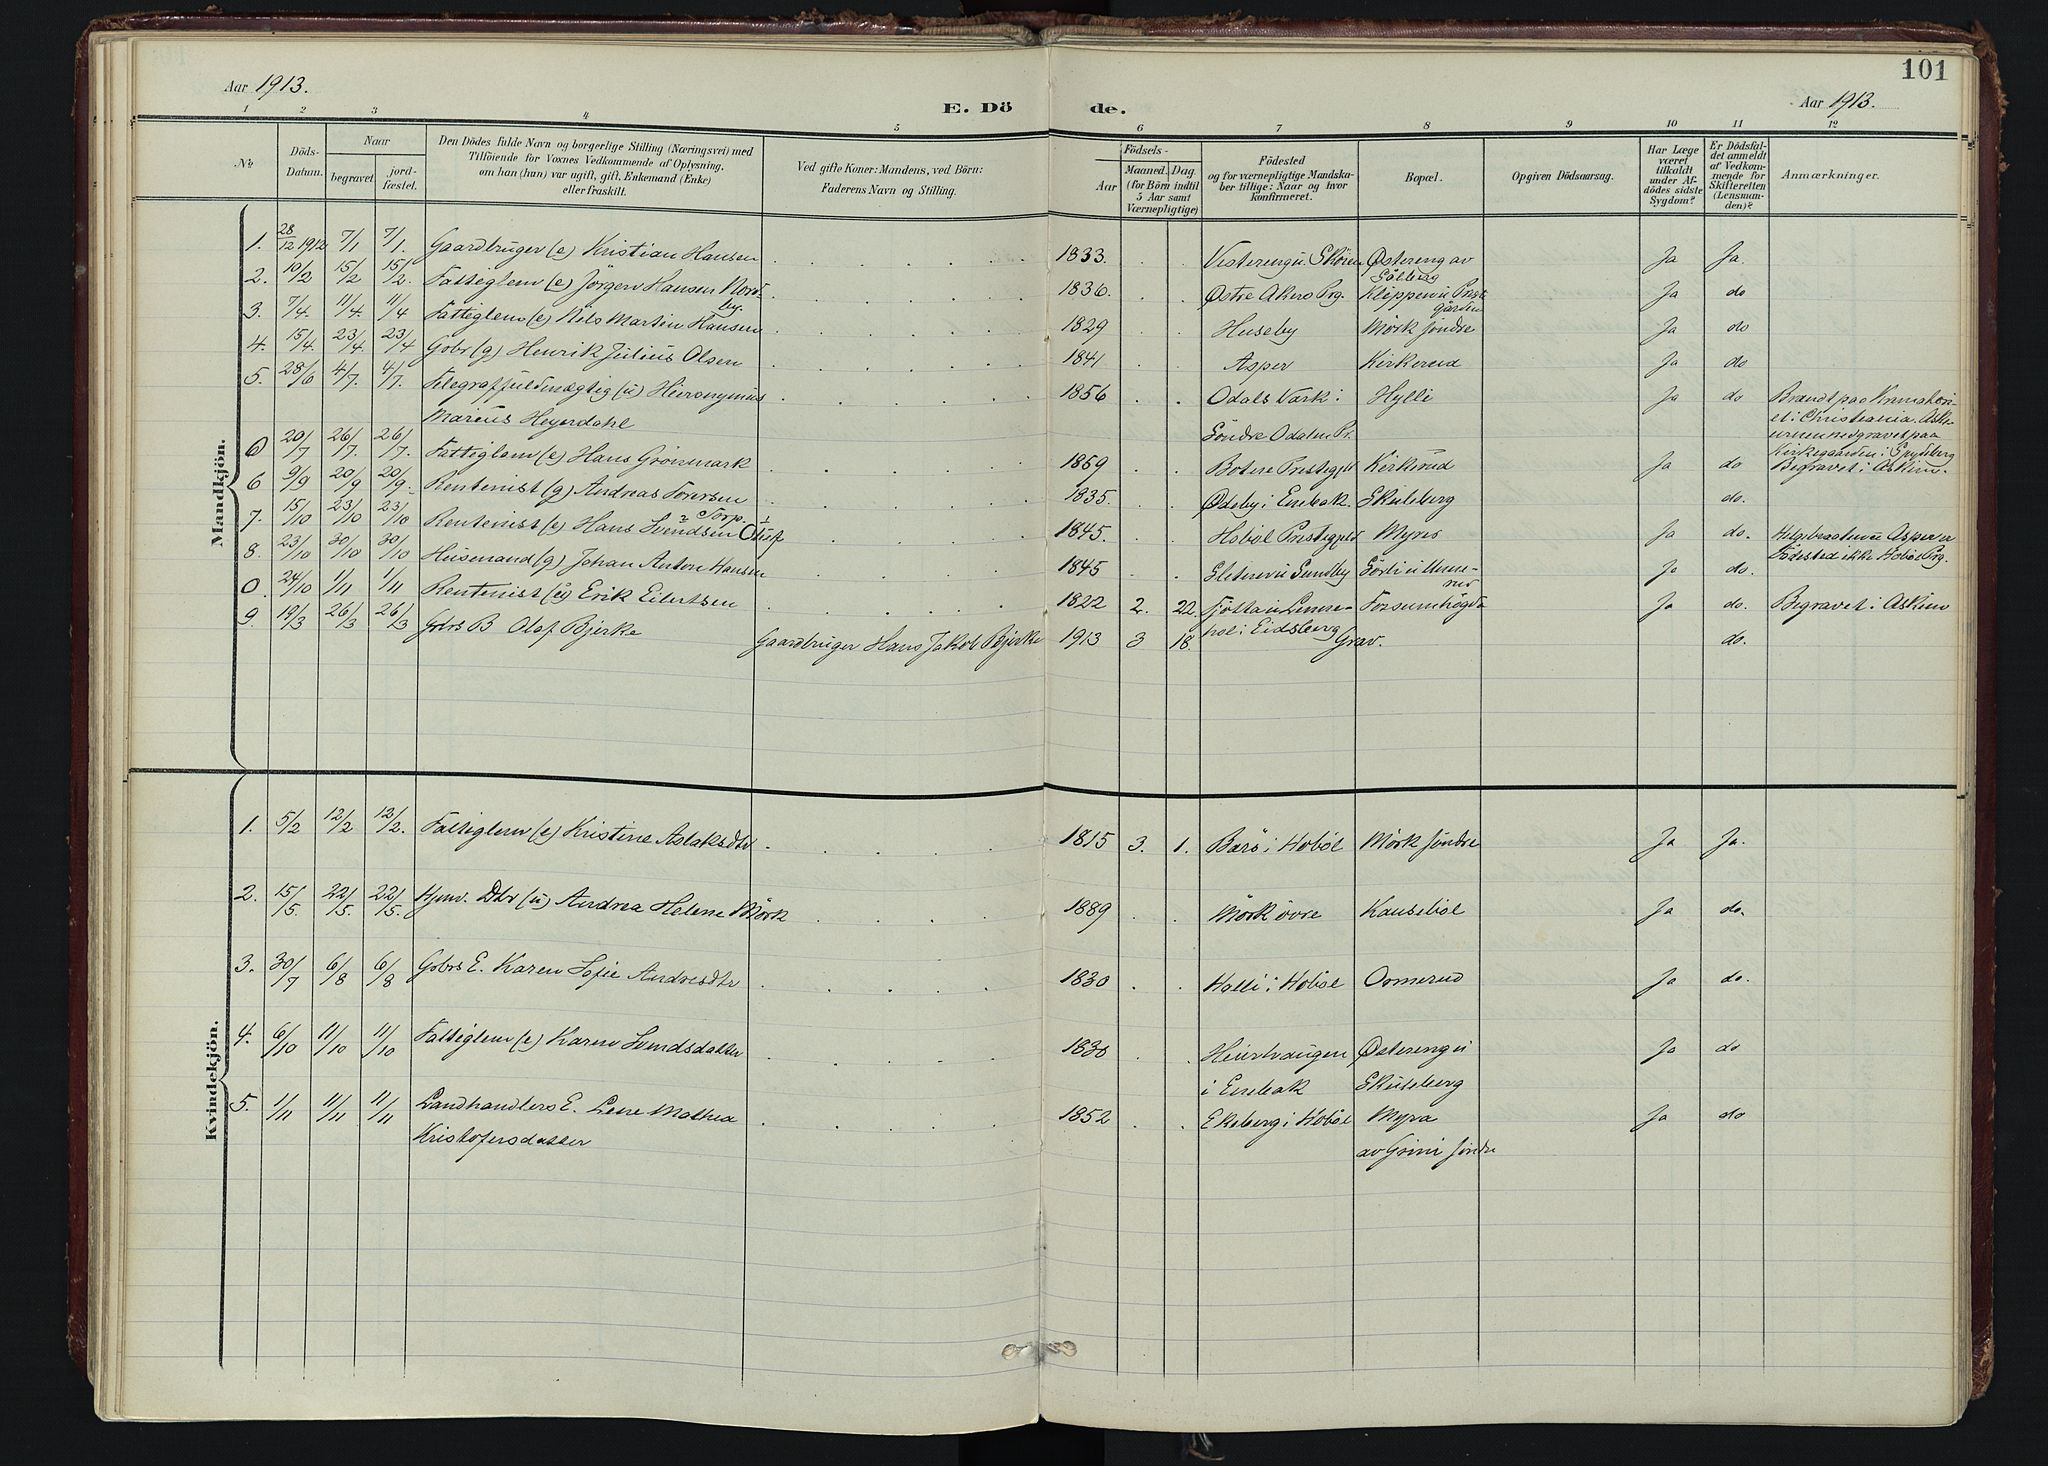 101
Aar 1913.
E. Dö
de.
Aar 1913.
1 2 3 4 5 6 7 8 9 10 11 12
No
Döds-
Datum.
Naar
begravet.
jord-
fæstet.
Den Dödes fulde Navn og borgerlige Stilling (Næringsvei) med
Tilföiende for Voxnes Vedkommende af Oplysning,
om han (hun) var ugift, gift, Enkemand (Enke)
eller fraskilt.
Ved gifte Koner: Mandens, ved Börn:
Faderens Navn og Stilling.
Födsels-
Aar
Maaned. Dag.
(for Börn indtil
5 Aar samt
Værnepligtige)
Födested
og for værnepligtige Mandska-
ber tillige: Naar og hvor
konfirmeret.
Bopæl.
Opgiven Dödsaarsag.
Har Læge
været
tilkaldt
under Af-
dödes sidste
Sygdom?
Er Dödsfal-
det anmeldt
af Vedkom-
mende for
Skifteretten
(Lensman-
den)?
Anmærkninger.
Mandkjön.
1. 28/12 1912 7/1 7/1. Gaardbruger (e) Kristian Hansen 1833. Østereng av Ja Ja.
2. 10/2 15/2 15/2. Fattiglem (e) Jörgen Hansen Nord- Solberg
by. 1836. Østre Akers Prg. Kloppen u Prest- Ja do
gården
3. 7/4. 11/4. 11/4 Fattiglem (e) Nils Martin Hansen 1829 Huseby Mörk söndre Ja do
4. 15/4. 23/4. 23/4 Gbr (g) Henrik Julius Olsen 1841 Asper Kirkerud Ja do
5. 28/6 4/7. 4/7. Telegraffuldmægtig (u) Hieronymus 1856 Odals Værk i Hylli Ja do Brandt paa Krematori-
Marius Heyerdahl Söndre Odalen Pr. et i Christiania. Aske-
urnen nedgravet paa
Kirkegaarden i Spydeberg
0 20/7 26/7. 26/7. Fattiglem (e) Hans Grönmark 1859 Botne Prestegjeld Kirkerud Ja do Begravet i Askim.
6 9/9 20/9 20/9. Rentenist (g) Andreas Torersen 1835. Ødeby i Enebak. Skuleberg do.
7. 15/10 23/10 23/10 Rentenist (e) Hans Svendsen Torp 1845. Hobøl Prestegjeld Myrs Ja do. Asper er
Födested ikke Hobøl Prg.
8. 23/10 30/10 30/10 Husmand (g) Johan Anton Hansen 1845 Sletner u Sundby Sörli u Unne- Ja do.
rud
0. 24/10 1/11 1/11 Rentenist Erik Eilertsen 1822 2. 22. Forsumhögda Ja do. Begravet i Askim
i Eidsberg
9. 19/3 26/3 26/3 Gbrs B Olaf Bjerke Gaardbruger Hans Jakob Bjerke 1913 3 18. Grav. do.
Kvindekjön.
1. 5/2 12/2 12/2. Fattiglem (e) Kristine Aslaksdtr 1815 3. 1. Bærö i Hobøl Mörk söndre Ja Ja.
2. 15/5. 22/5. 22/5. Hjmv. Dtr (u) Andrea Helene Mörk 1889 Mörk övre Kausebøl Ja do.
3. 30/7 6/8 6/8 Gbrs E. Karen Sofie Andresdtr 1830 Halli i Hobøl Ormerud Ja do.
4. 6/10 11/10 11/10 Fattiglem (e) Karen Svendsdatter 1830 Heierhaugen Østereng u Ja do
i Enebak Skuleberg
5. 1/11 11/11 11/11 Landhandlers E. Lene Mathea 1852 Ekeberg i Hobøl Myra Ja do
Kristofersdatter av Grini söndre